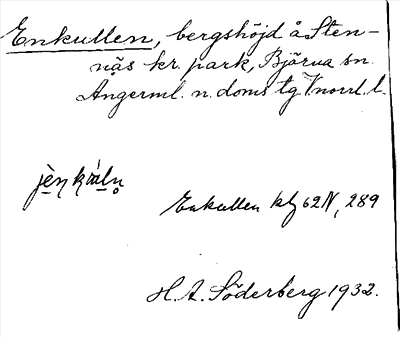 Enkullen, bergshöjd å Sten-
näs kr. park, Björna sn.
Ångerml. n. doms tg Vnorrl. l.
Enkullen kbl 62 N, 289
H. A. Söderberg 1932.